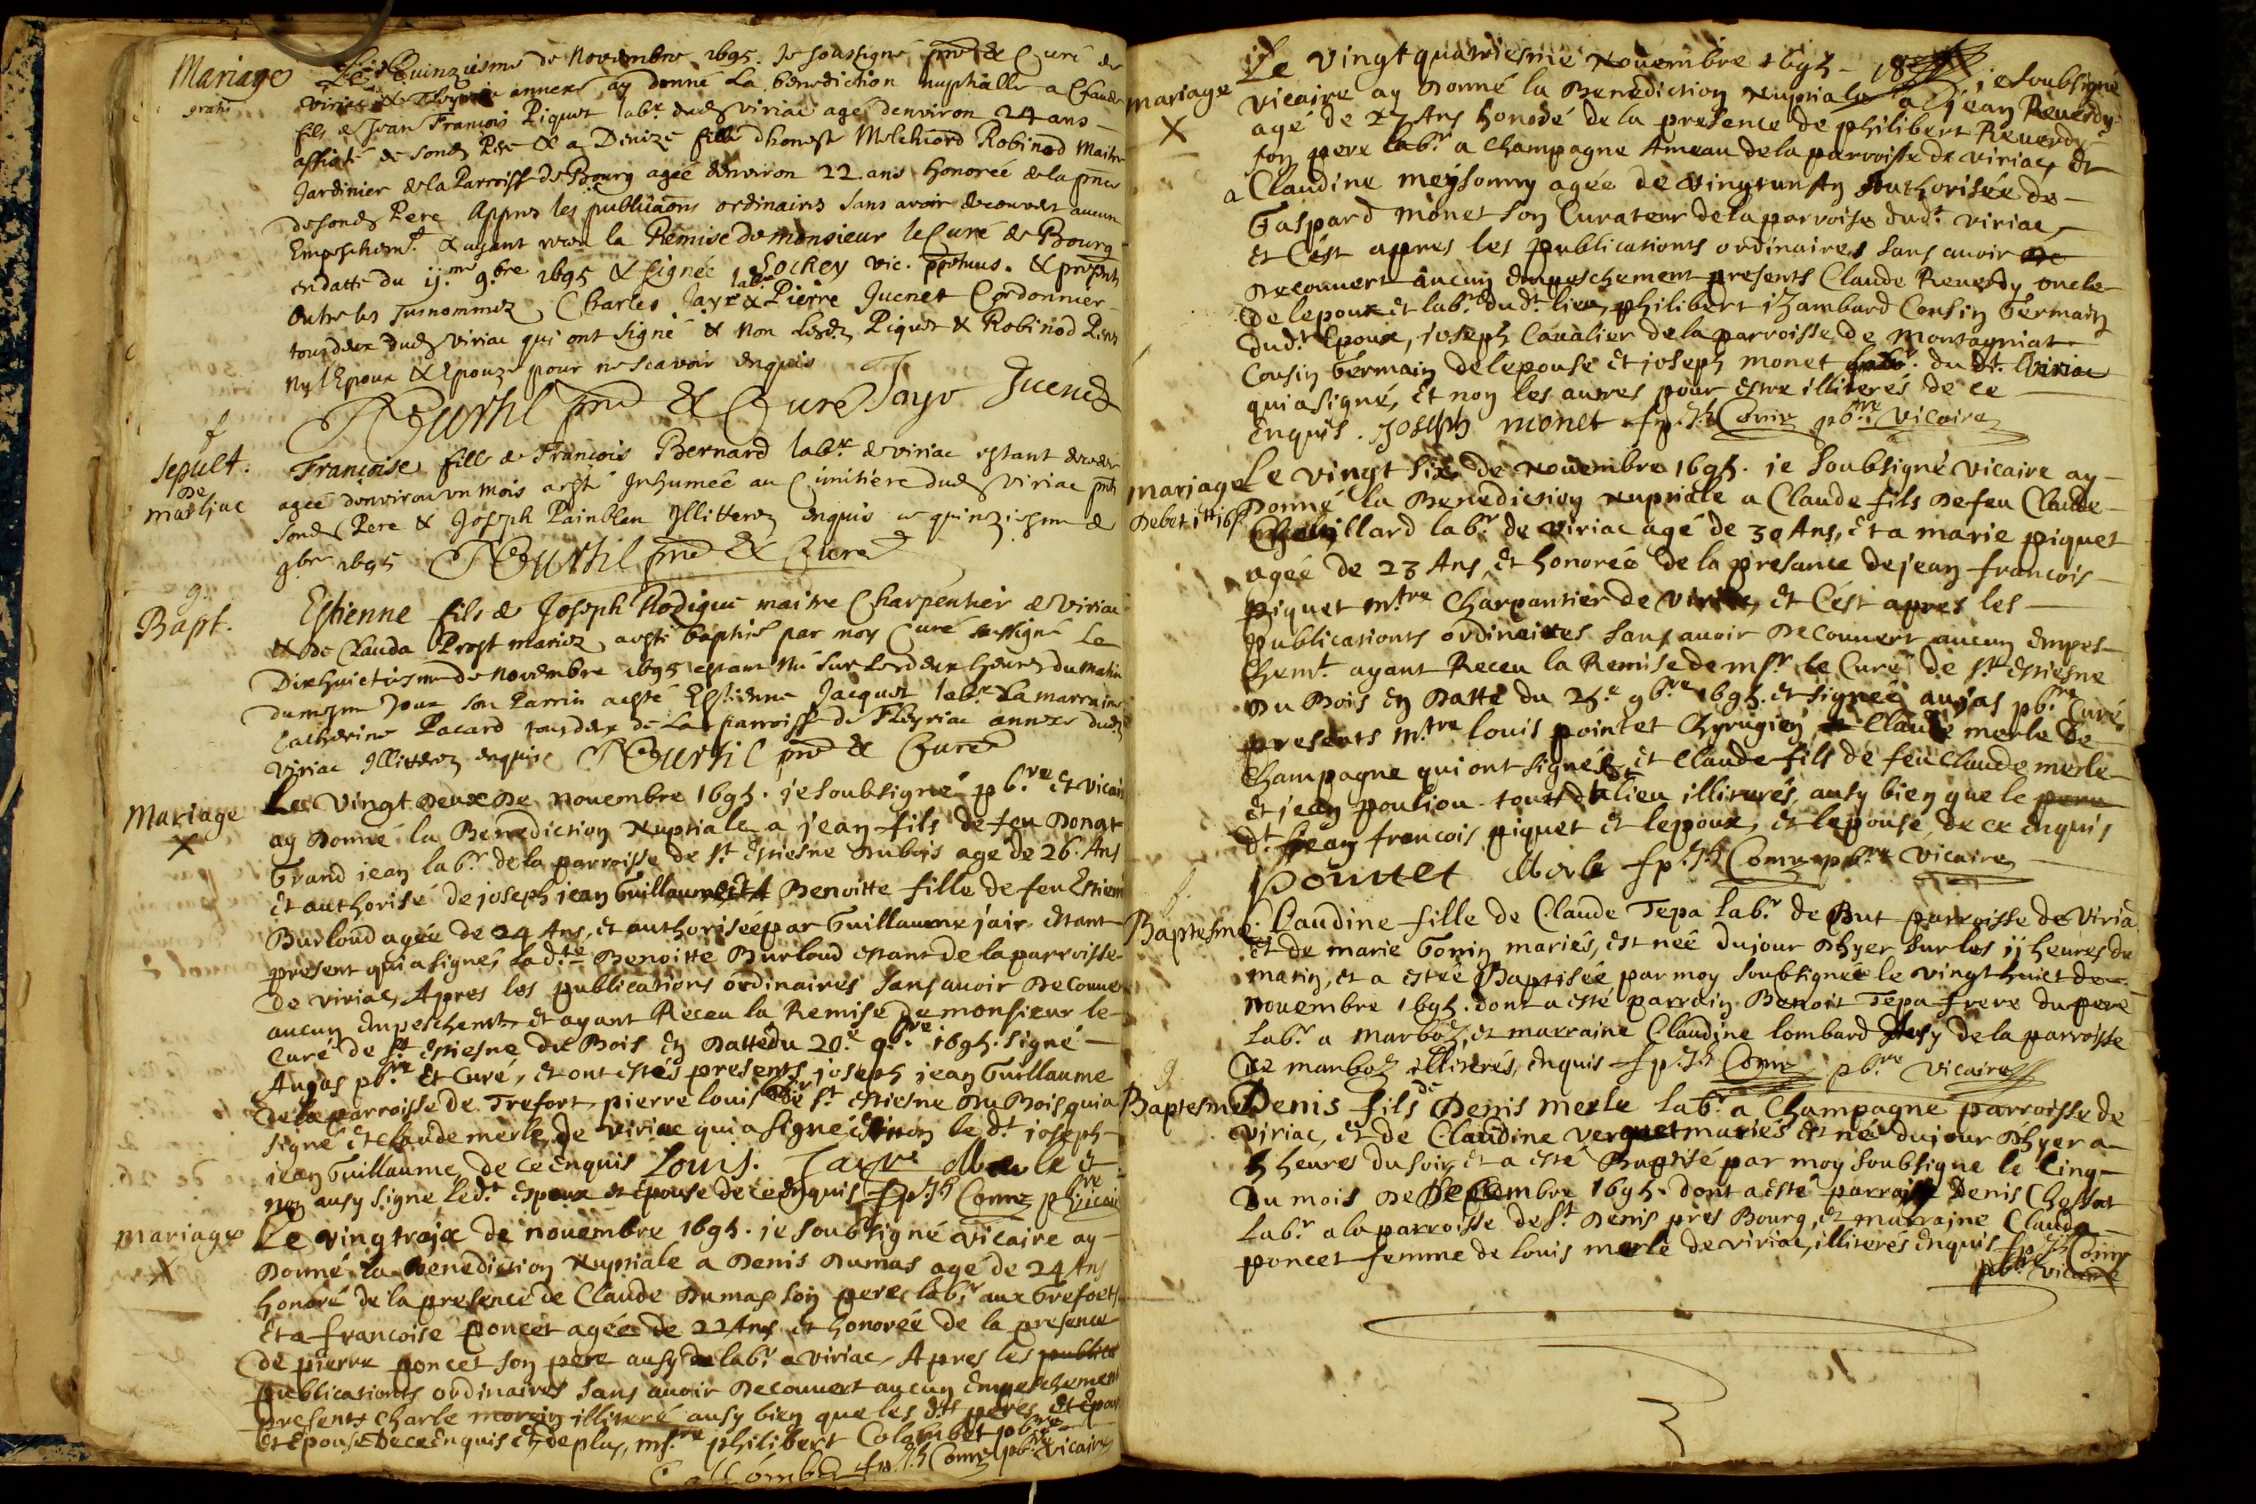 Mariage
gratis
Le Quinziesme de Novembre 1695. Je soussigné pre & Curé de
Viriac & annexe, ay donné La benediction nuptialle a Claude
fils de Jean François Piquet labr dud Viriac agé denviron 24 ans
assisté de sond Pere & a Denize fille dhonest Melchiord Robinod Maitre
Jardinier de la Parroisse de Bourg agée denviron 22 ans honorée de la pnce
de sond Pere Appres les publicaons ordinaires sans avoir decouvert aucun
Empeschemt & ayant receu la Remise de monsieur le Curé de Bourg
en datte du 9bre 1695 & signée Sochey vic. & presents
Outre les surnommez, Charles Jayr labr & Pierre Juenet Cordonnier
tous deux dud Viriac qui ont signé & non lesd Piquet & Robinod Peres
ny l'Epoux & Epouze pour ne scavoir enquis
pre & Curé Jayr Juenet
f
sepult.
de
marljac
Françoise fille de François Bernard labr de viriac estant decedée
agée denviron un mois a esté Inhumée au Cimitiere dud Viriac pnts
Sond Pere & Joseph Painblan Illitterez enquis ce quinziesme de
9bre 1695 pre & Curé
g
Bapt.
Estienne fils de Joseph Rodigue maitre Charpentier de Viriac
& de Clauda Prost mariez a esté baptisé par moy Curé sussigné Le
Dixhuictiesme de Novembre 1695 estant Né sur les deux heures du Matin
du mesme Jour son Parrin a esté Estienne Jacquet labr La marraine
Catherine Pacard tous deux de La parroisse de Fleyriac annexe dud
Viriac Illitterez enquis pre & Curé
Mariage
X
Le Vingt deux de novembre 1695. je soubsigné pbre et vicaire
ay donné la Benediction Nuptiale a jean fils de feu Donat
Grand jean labr de la parroisse de st Estiesne dubois agé de 26 Ans
Et authorisé de joseph jean Guillaume et A Benoitte fille de feu Estiene
Burloud agée de 24 Ans, et authorisée par Guillaume jair Estant
present qui a signés, lad.te Benoitte Burloud estant de la parroisse
de viriac, Apres les publications ordinaires sans avoir decouvert
aucun Empeschent, et ayant Receu la Remise de monsieur le
Curé de st Estiesne du Bois En Datte du 20.e 9bre 1695. signé
Aujas pbre Et Curé, et ont estés presents joseph jean Guillaume
de la parroisse de Trefort, pierre louis de st Estiesne Du Bois qui a
signé et claude merle de viriac qui a signé et non le dt joseph
jean Guillaume de ce enquis Louis. Jayr Merle et
non ausy signe led.t Espoux et Epouse de ce enquis pbre vicai
mariage
X
Le vingtroix de novembre 1695. je soubsigné vicaire ay
donné la benediction Nuptiale a Denis Dumas agé de 24 Ans
honoré de la presence de Claude Dumas son pere labr aux Grefoets
Et a francoise poncet agée de 22 Ans et honorée de la presence
de pierre poncet son pere ausy labr a viriac, Apres les
publications ordinaires sans avoir decouvert aucun Empeschement
presents Charle morein illiteré ausy bien que les dts peres Et Epoux
et Epouse De ce Enquis Et de plus, philibert Colombet pbre
pbre vicaire
mariage
X
Le Vingtquatriesme Novembre 1695 je soubsigné
Vicaire ay donné la Benediction Nuptiale a jean Reverdy
agé de 27 Ans honoré de la presence de philibert Reverdy
son pere labr a Champagne Ameau de la parroisse de viriac, et
a Claudine meysonny agée de vingtun An Authorisée de
Gaspard monet son Curateur de la parroise dudt viriac
et Cést apres les publications ordinaires sans avoir
decouvert aucun Empeschement presents Claude Reverdy oncle
de lepoux et labr dudt lieu, philibert izambard Cousin Germain
dudt Epoux, joseph Cavalier de la parroisse de Montagniat
Cousin Germain de lepouse et joseph monet labr du dt viriac
qui a signé, et non les autres pour estre illiterés de ce
enquis. Joseph monet pbre vicaire
mariage
Debet
Le vingt six de Novembre 1695. je soubsigné vicaire ay
Donné la Benediction Nuptiale a Claude fils de feu Claude
Chevillard labr de viriac agé de 30 Ans, et a marie piquet
agée de 23 Ans, et honorée de la presance de jean francois
piquet mtre Charpantier de viriac, et Cést apres les
publications ordinaires sans avoir decouvert aucun Empes
chemt ayant Receu la Remise de msr le Curé de st Estiesne
du Bois En Datte du 25.e 9bre 1695. et signée aujas pbre Curé
presents mtre louis pointet Chyrugien, et Claude merle de
Champagne qui ont signés, et Claude fils de feu Claude merle
et jean poulion tout du lieu illiterés, ausy bien que le
dt jean francois piquet et lepoux, et lepouse de ce enquis
pointet Merle pbre vicaire
f
Baptesme
Claudine fille de Claude Tepa labr de But parroisse de Viria
et de marie Gonin mariés, est née du jour dhyer sur les 11 heures du
matin, et a estée Baptisée par moy soubsigné le vingt huict de
novembre 1695. dont a esté parrain Benoit Tepa frere du pere
labr a marboz, et marraine Claudine lombard Ausy de la parroisse
de marboz illiterés, enquis pbre vicaire
g
Baptesme
Denis fils de Denis merle labr a Champagne parroisse de
viriac, et de Claudine verguet mariés est né du jour Dhyer a
5 heures du soir, et a esté Baptisé par moy soubsigne le Cinq
du mois de Decembre 1695. dont a esté parrain Denis Chossat
labr a la parroisse de st Denis pres Bourg, et marraine Clauda
poncet femme de louis merle de viriac, illiterés enquis
pbre vicaire